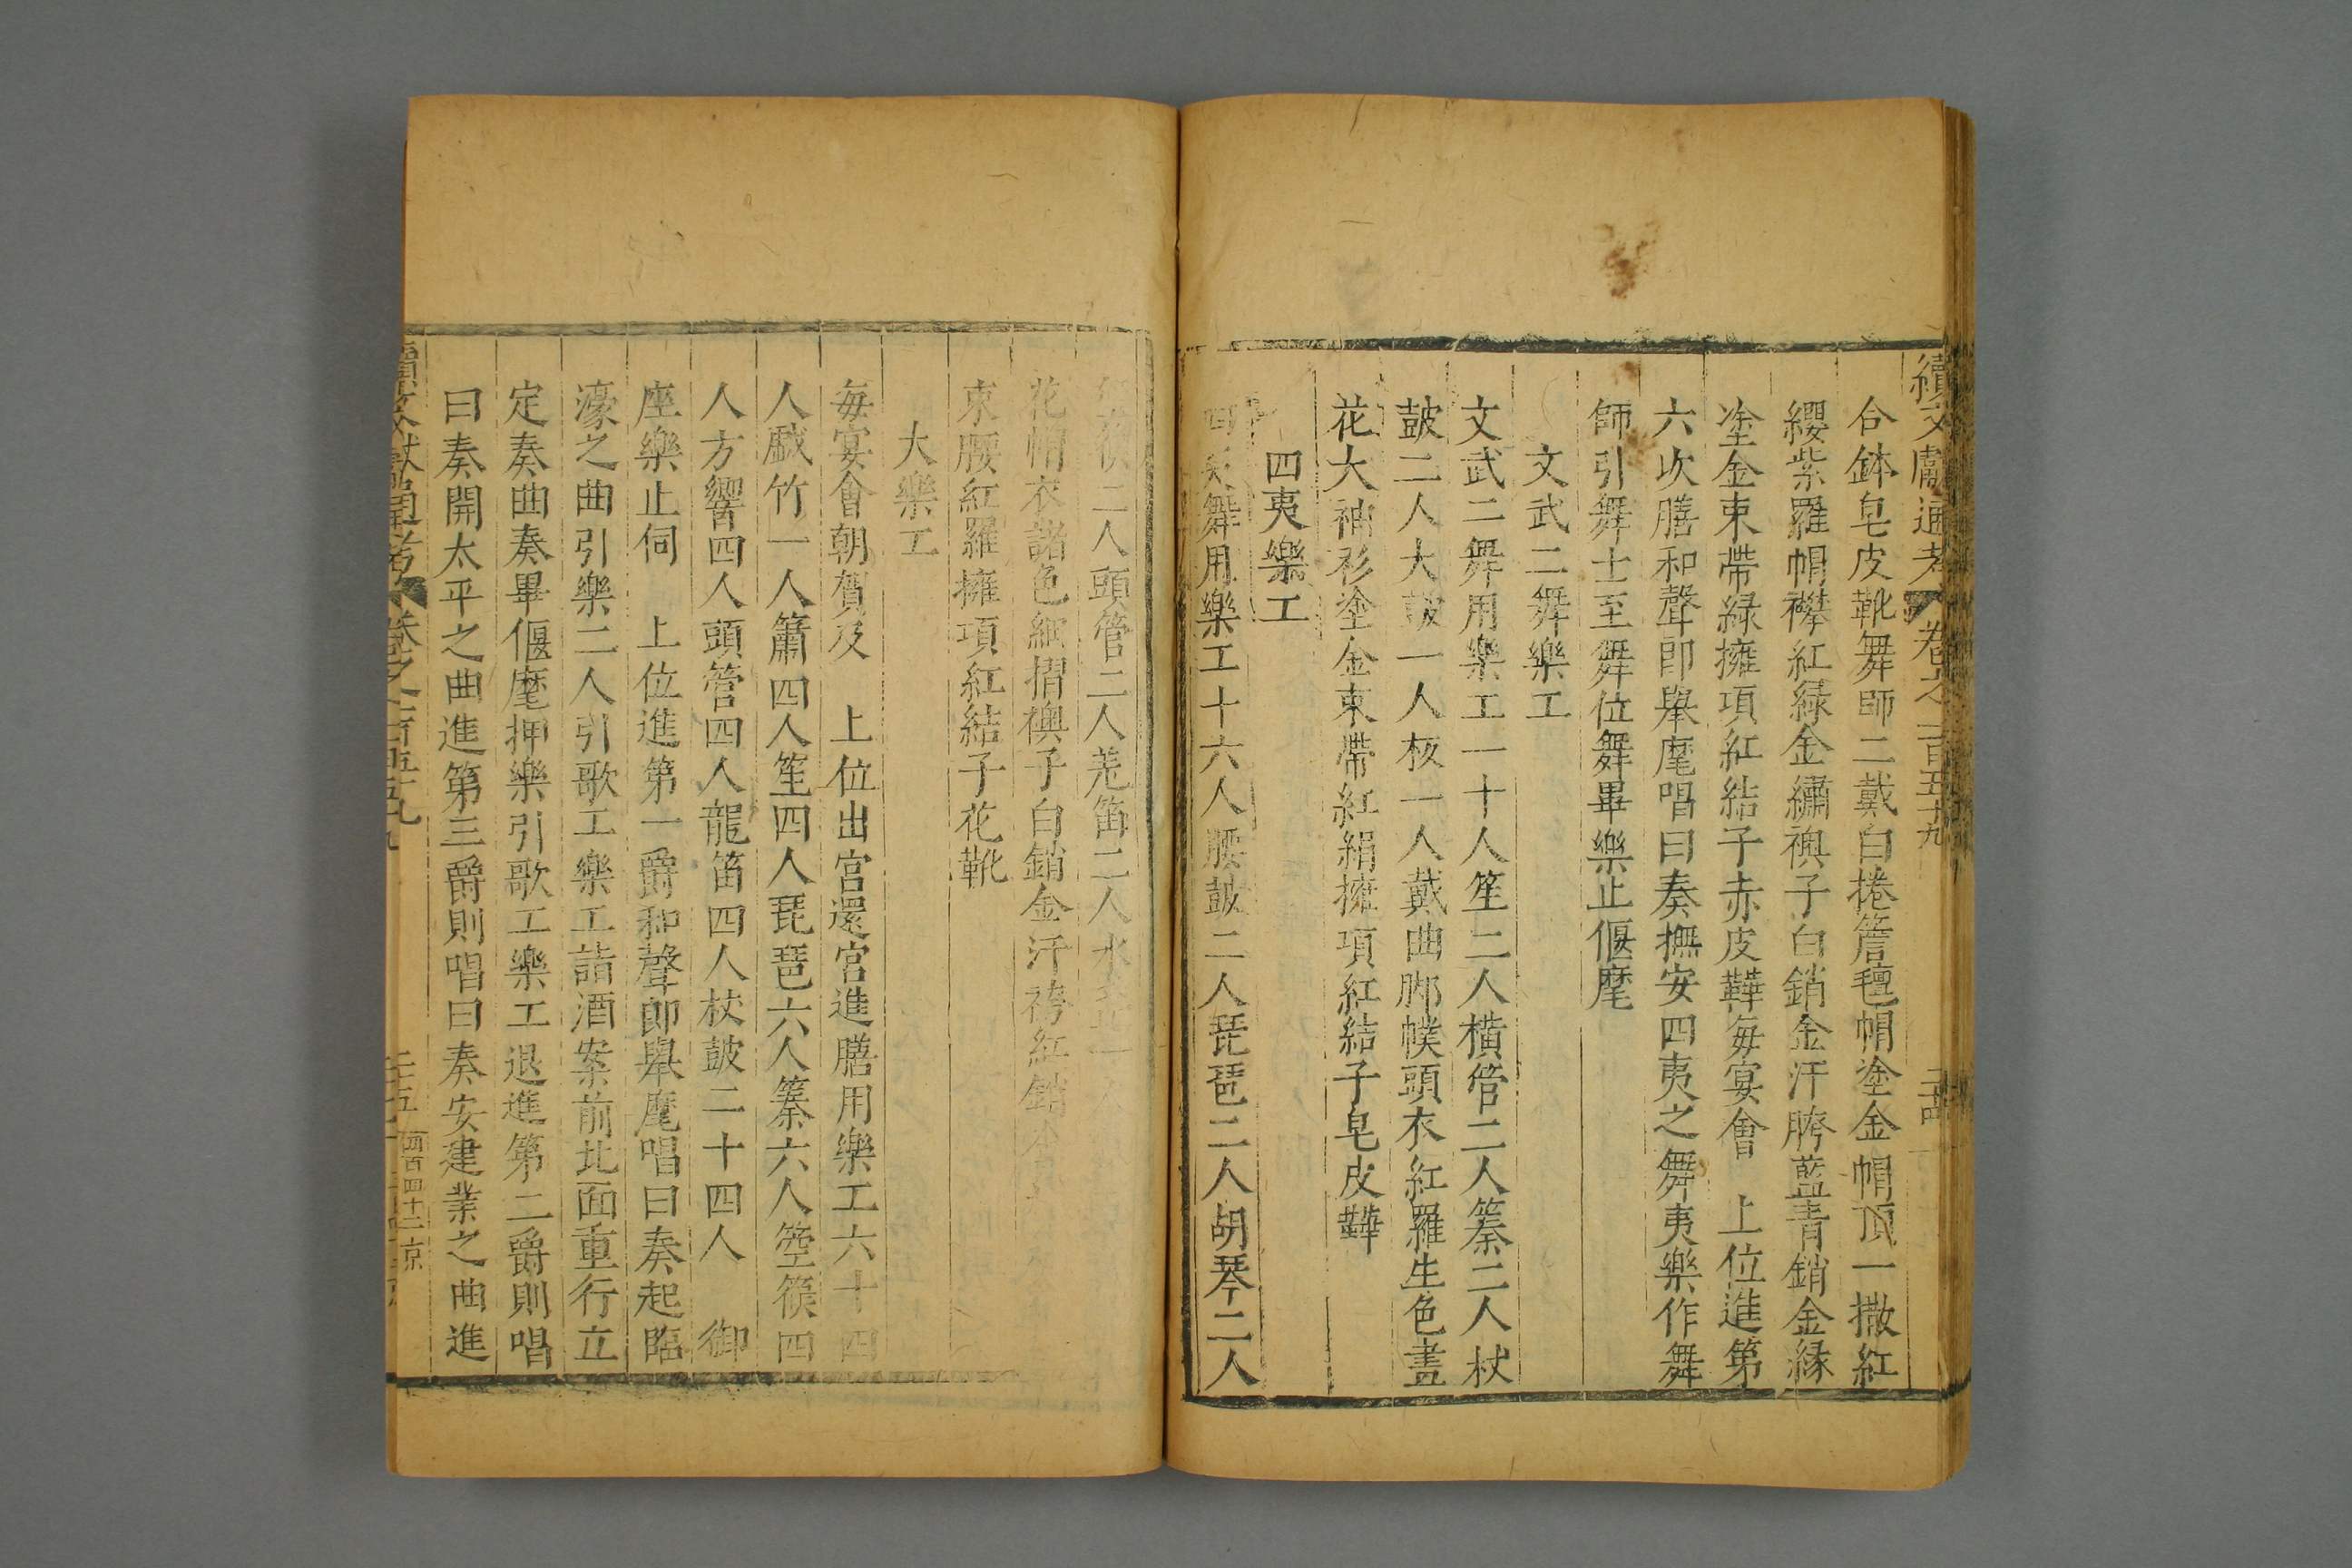 續文獻通考 卷之一百五十九
合鉢皂皮靴舞師二戴白捲簷氊帽塗金帽頂一撒紅
纓紫羅帽襻紅綠金繡襖子白銷金汗胯藍青銷金緣
塗金束帶綠擁項紅結子赤皮鞾每宴會 上位進第
六次膳和聲郎舉麾唱曰奏撫安四夷之舞夷樂作舞
師引舞士至舞位舞畢樂止偃麾
文武二舞樂工
文武二舞用樂工一十人笙二人橫管二人𥱧二人杖
鼓二人大鼓一人板一人戴曲脚幞頭衣紅羅生色畫
花大袖衫塗金束帶紅絹擁項紅結子皂皮鞾
四夷樂工
四夷舞用樂工十六人腰鼓二人琵琶二人胡琴二人
二人頭管二人羌笛二人水
花帽衣諸色細摺襖子白銷金汗袴紅銷
束腰紅羅擁項紅結子花靴
大樂工
每宴會朝賀及 上位出宮還宮進膳用樂工六十四
人戲竹一人簫四人笙四人琵琶六人𥱧六人箜篌四
人方響四人頭管四人龍笛四人杖鼓二十四人 御
座樂止伺 上位進第一爵和聲郎舉麾唱曰奏起臨
濠之曲引樂二人引歌工樂工詣酒案前北面重行立
定奏曲奏畢偃麾押樂引歌工樂工退進第二爵則唱
曰奏開太平之曲進第三爵則唱曰奏安建業之曲進
續文獻通考 卷之一百五十九